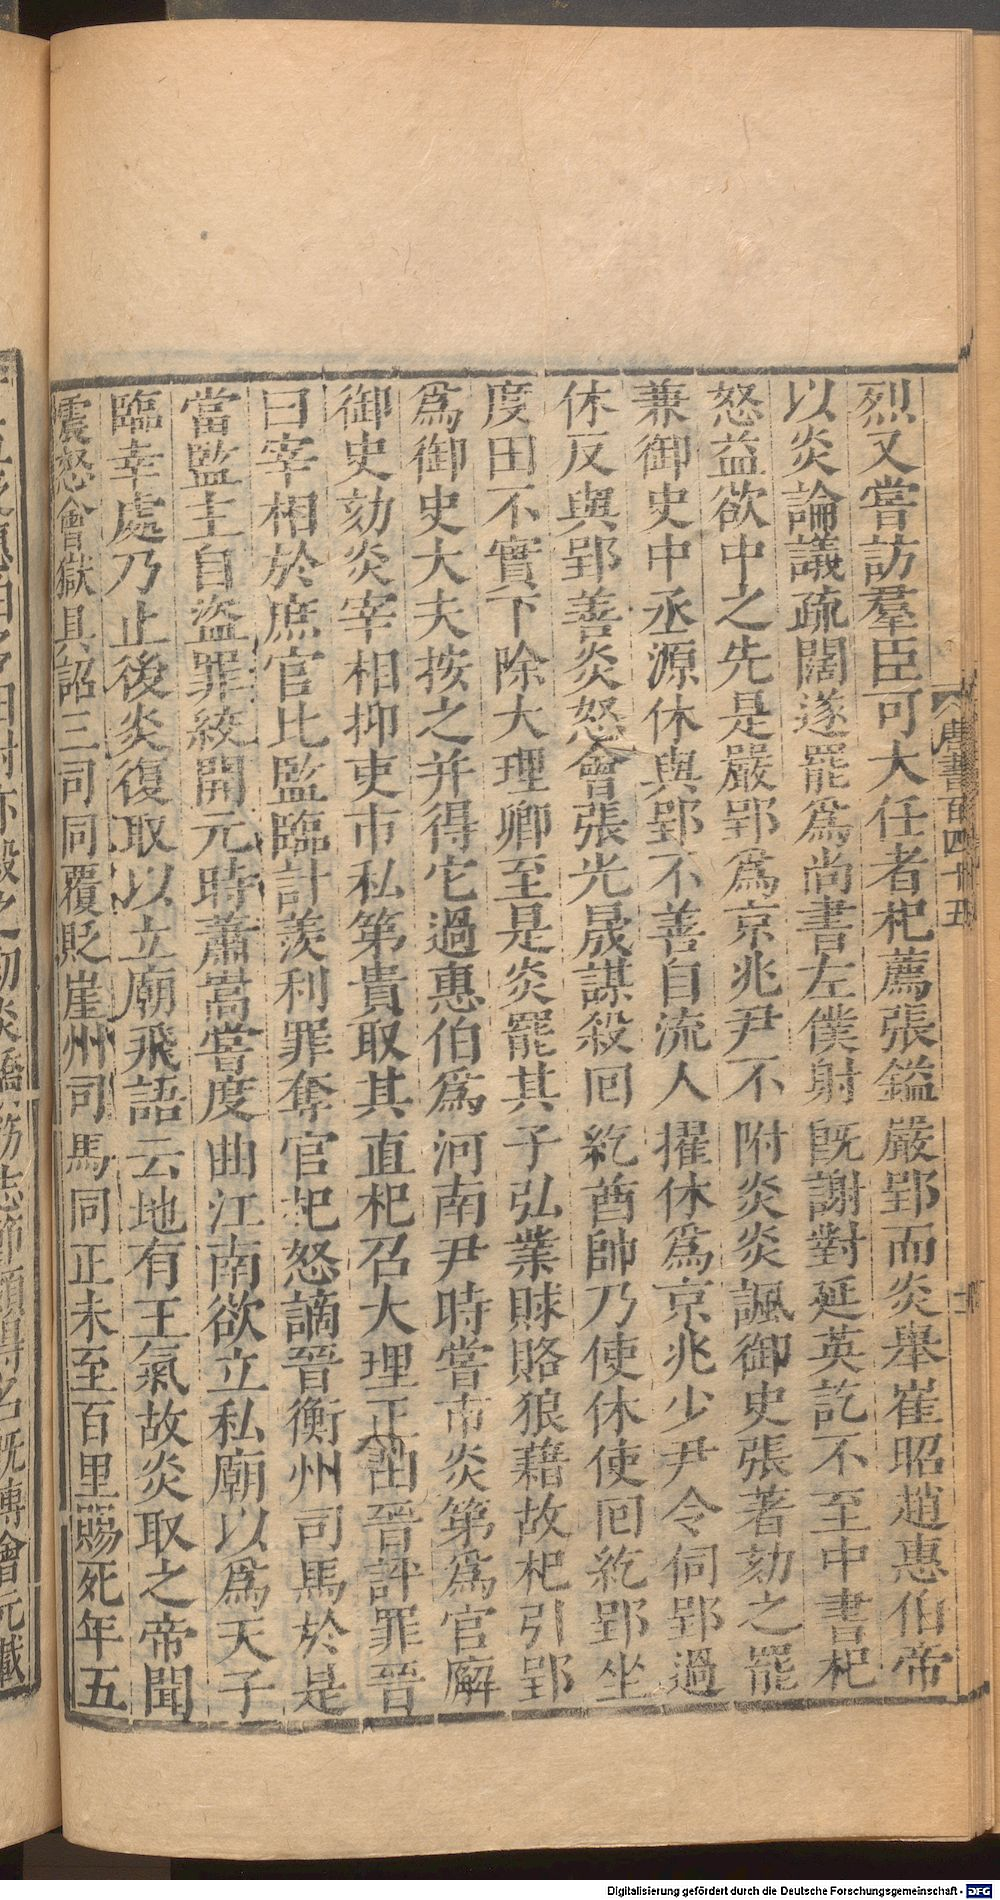 烈又嘗訪羣臣可大任者杞薦張鎰嚴郢而炎舉崔昭趙惠伯帝
以炎論議疏闊遂罷爲尚書左僕射旣謝對延英訖不至中書杞
怒益欲中之先是嚴郢爲京兆尹不附炎炎諷御史張著劾之罷
兼御史中丞源休與郢不善自流人擢休爲京兆少尹令伺郢過
休反與郢善炎怒會張光晟謀殺回紇酋帥乃使休使回紇郢坐
度田不實下除大理卿至是炎罷其子弘業賕賂狼藉故杞引郢
爲御史大夫按之并得它過惠伯爲河南尹時嘗市炎第爲官廨
御史劾炎宰相抑吏市私第貴取其直杞召大理正田晉評罪晉
曰宰相於庶官比監臨計羨利罪奪官杞怒謫晉衡州司馬於是
當監主自盜罪絞開元時蕭嵩嘗度曲江南欲立私廟以爲天子
臨幸處乃止後炎復取以立廟飛語云地有王氣故炎取之帝聞
震怒會獄具詔三司同覆貶崖州司馬同正未至百里賜死年五
唐書百四十五
十
Digitalisierung gefördert durch die Deutsche Forschungsgemeinschaft - DFG